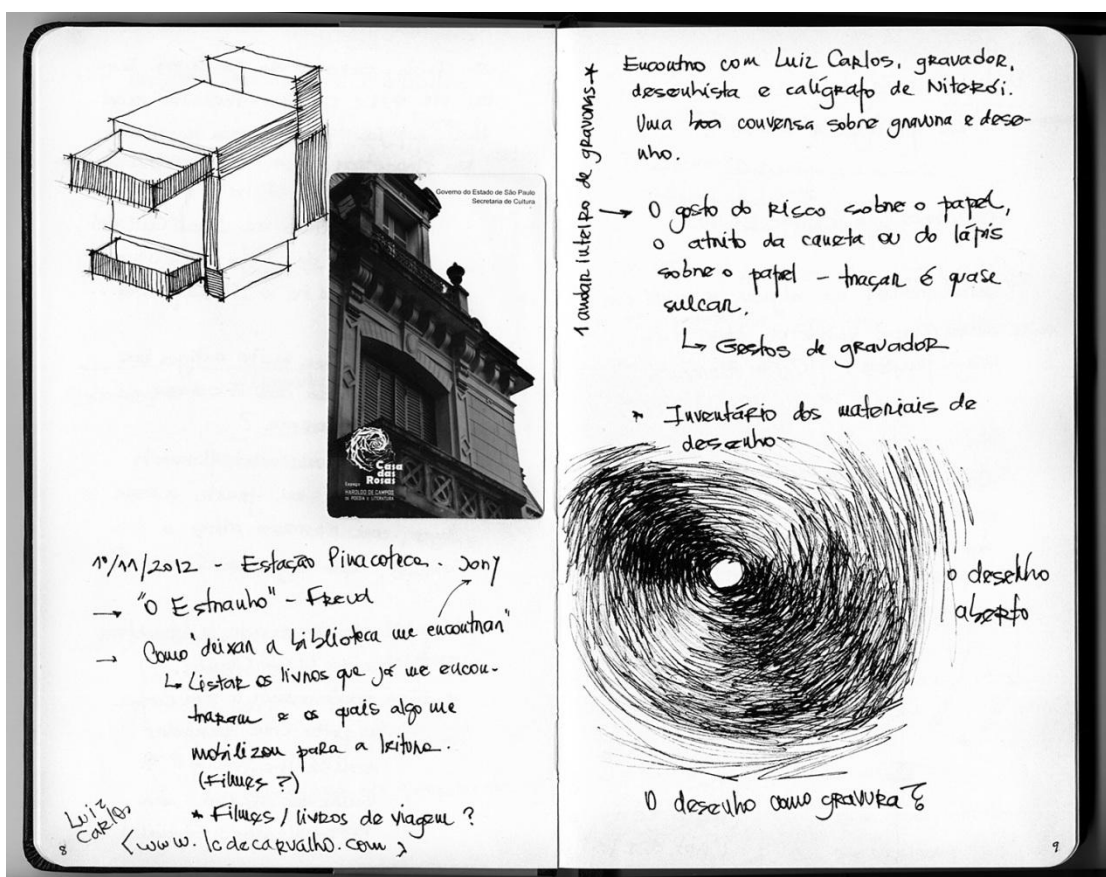 Governo do Estado de São Paulo
Secretaria de Cultura
Casa
das
Rosas
Espaço
HAROLDO DE CAMPOS
DE POESIA E LITERATURA
1º/11/2012 - Estação Pinacoteca. Jony
→ "O Estranho" - Freud
→ Como "deixar a biblioteca me encontrar"
↳ Listar os livros que já me encon-
traram e os quais algo me
mobilizou para a leitura.
(Filmes?)
* Filmes / livros de viagem?
Luiz
Carlos
<www.lcdecarvalho.com>
8
1 andar inteiro de gravuras *
Encontro com Luiz Carlos, gravador,
desenhista e calígrafo de Niterói.
Uma boa conversa sobre gravura e dese-
nho.
→ O gosto do risco sobre o papel,
o atrito da caneta ou do lápis
sobre o papel - traçar é quase
sulcar.
↳ Gestos de gravador
* Inventário dos materiais de
desenho
o desenho
aberto
O desenho como gravura?
9